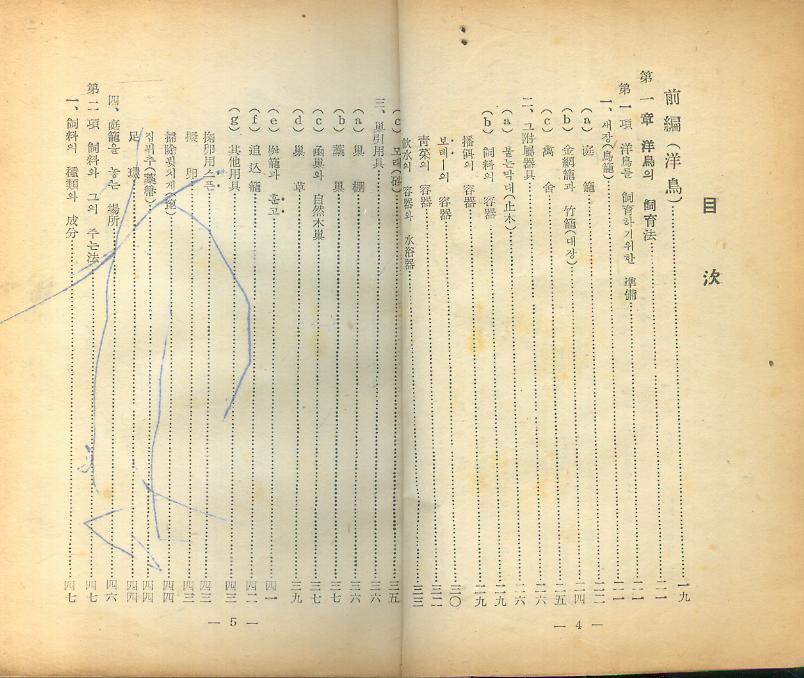 目次
前編(洋鳥)‥‥一九
第一章 洋鳥의 飼育法‥‥二一
第一項 洋鳥를 飼育하기위한 準備‥‥二一
一、새장(鳥籠)‥‥二二
(a) 庭籠‥‥二四
(b) 金網籠과 竹籠(대장)‥‥二五
(c) 禽舍‥‥二六
二、그附屬器具‥‥二六
(a) 붙는막대(止木)‥‥二九
(b) 飼料의 容器‥‥二九
播餌의 容器
보레ー의 容器‥‥三〇
靑菜의 容器‥‥三二
飮水의 容器와 水浴器‥‥三三
(c) 모래(砂)‥‥三五
三、巢引用具‥‥三六
(a) 巢棚‥‥三六
(b) 藁巢‥‥三七
(c) 函巢와 自然木巢‥‥三七
(d) 巢草‥‥三九
(e) 후고‥‥四一
(f) 追込籠‥‥四二
(g) 其他用具‥‥四三
掬卵用스푼‥‥四三
擬卵‥‥四三
四四
四四
足環‥‥四四
四、庭籠을 놓는 場所‥‥四六
第二項 飼料와 그의 주는法‥‥四七
一、飼料의 種類와 成分‥‥四七
— 4 —
— 5 —